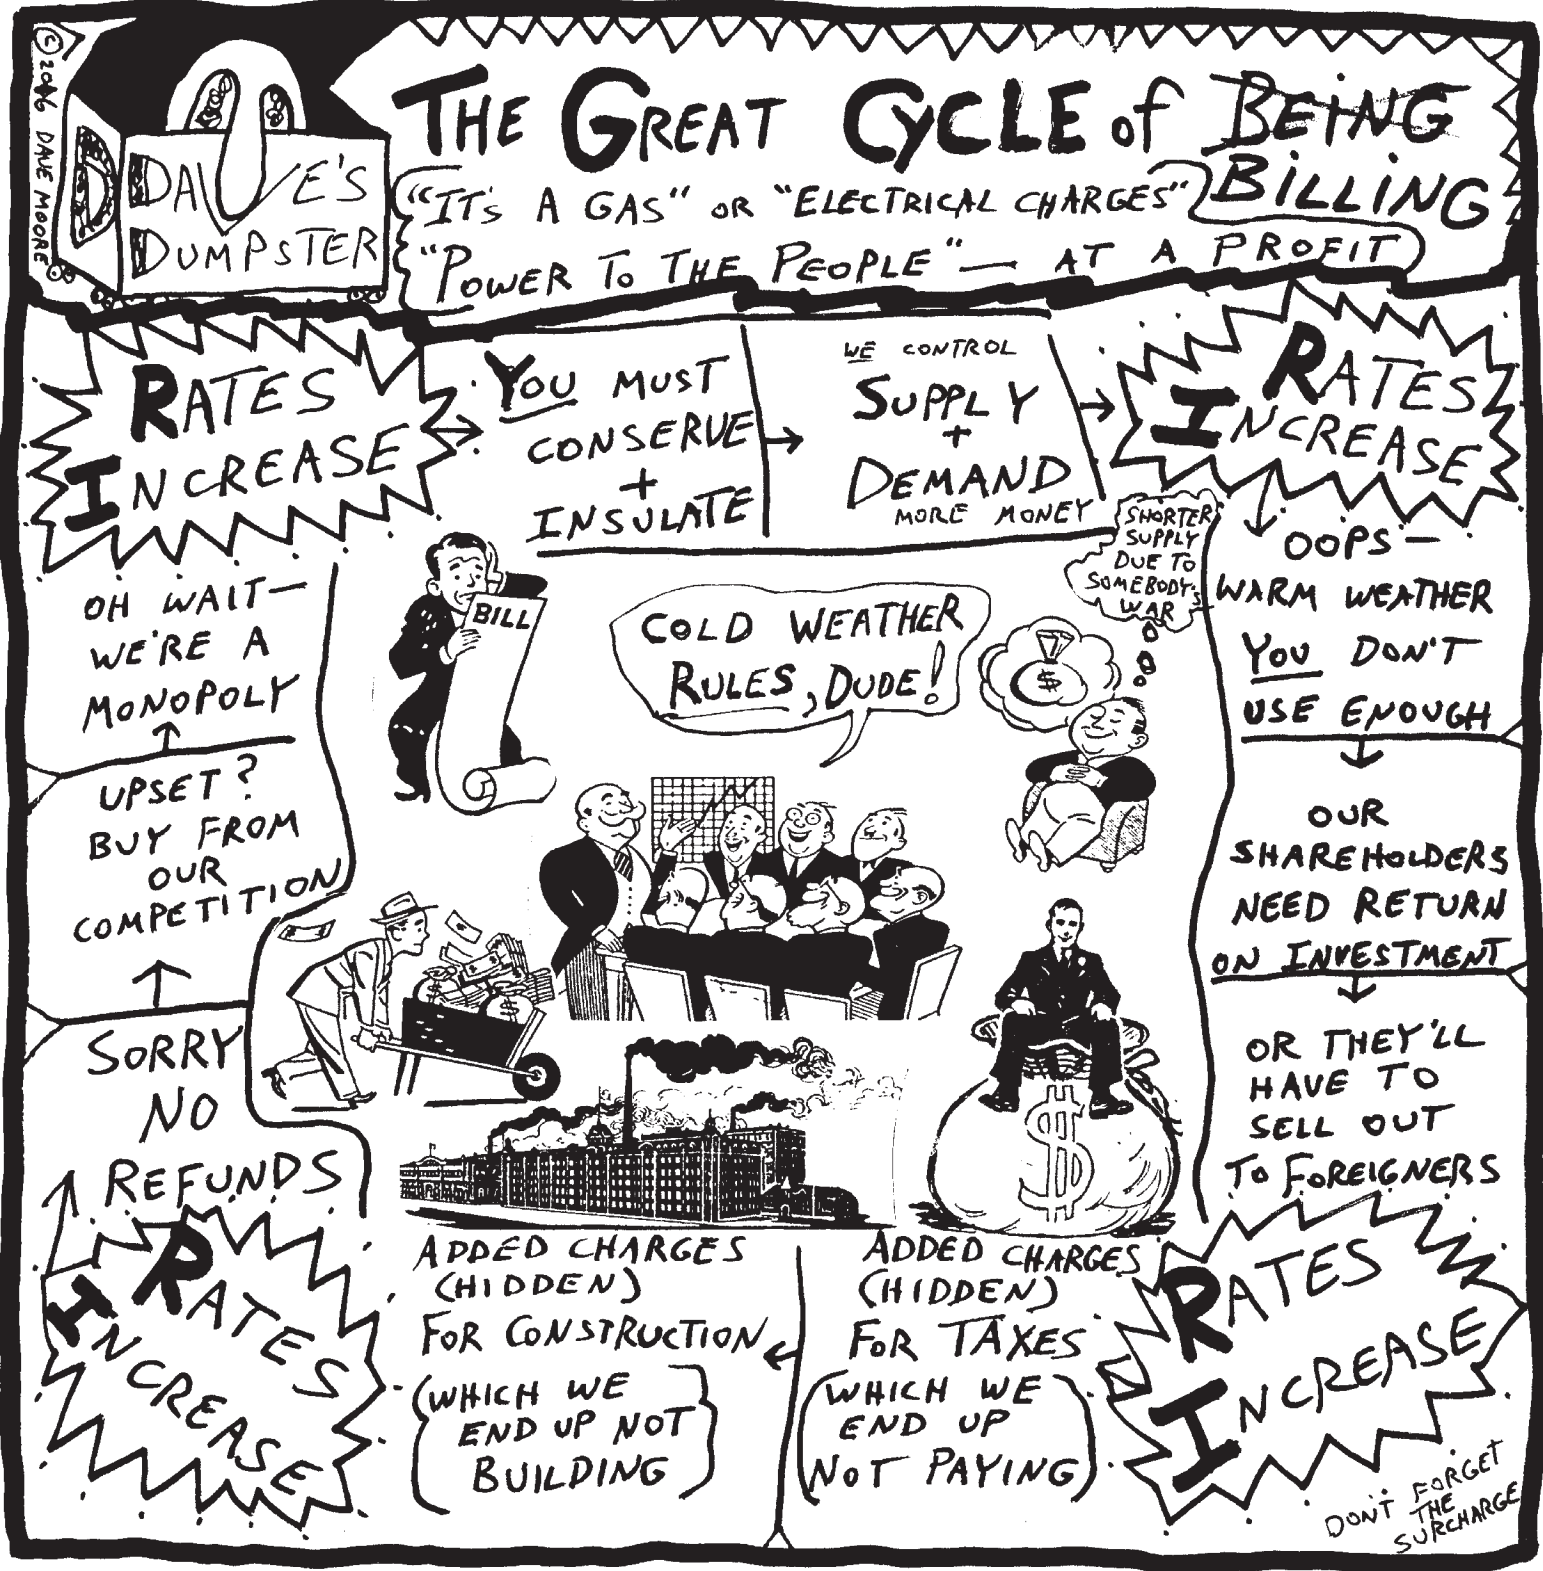 © 2006 DAVE MOORE
DAVE'S
DUMPSTER
THE GREAT CYCLE of BEING
BILLING
"IT'S A GAS" OR "ELECTRICAL CHARGES"
"POWER TO THE PEOPLE" — AT A PROFIT
RATES
INCREASE
YOU MUST
CONSERVE
+
INSULATE
WE CONTROL
SUPPLY
+
DEMAND
MORE MONEY
RATES
INCREASE
OOPS —
WARM WEATHER
YOU DON'T
USE ENOUGH
OUR
SHAREHOLDERS
NEED RETURN
ON INVESTMENT
OR THEY'LL
HAVE TO
SELL OUT
TO FOREIGNERS
RATES
INCREASE
DON'T FORGET
THE
SURCHARGE
ADDED CHARGES
(HIDDEN)
FOR TAXES
(WHICH WE
END UP
NOT PAYING)
ADDED CHARGES
(HIDDEN)
FOR CONSTRUCTION
{WHICH WE
END UP NOT
BUILDING}
RATES
INCREASE
SORRY
NO
REFUNDS
UPSET?
BUY FROM
OUR
COMPETITION
OH WAIT—
WE'RE A
MONOPOLY
BILL
COLD WEATHER
RULES, DUDE!
SHORTER
SUPPLY
DUE TO
SOMEBODY'S
WAR
$
$
$
$